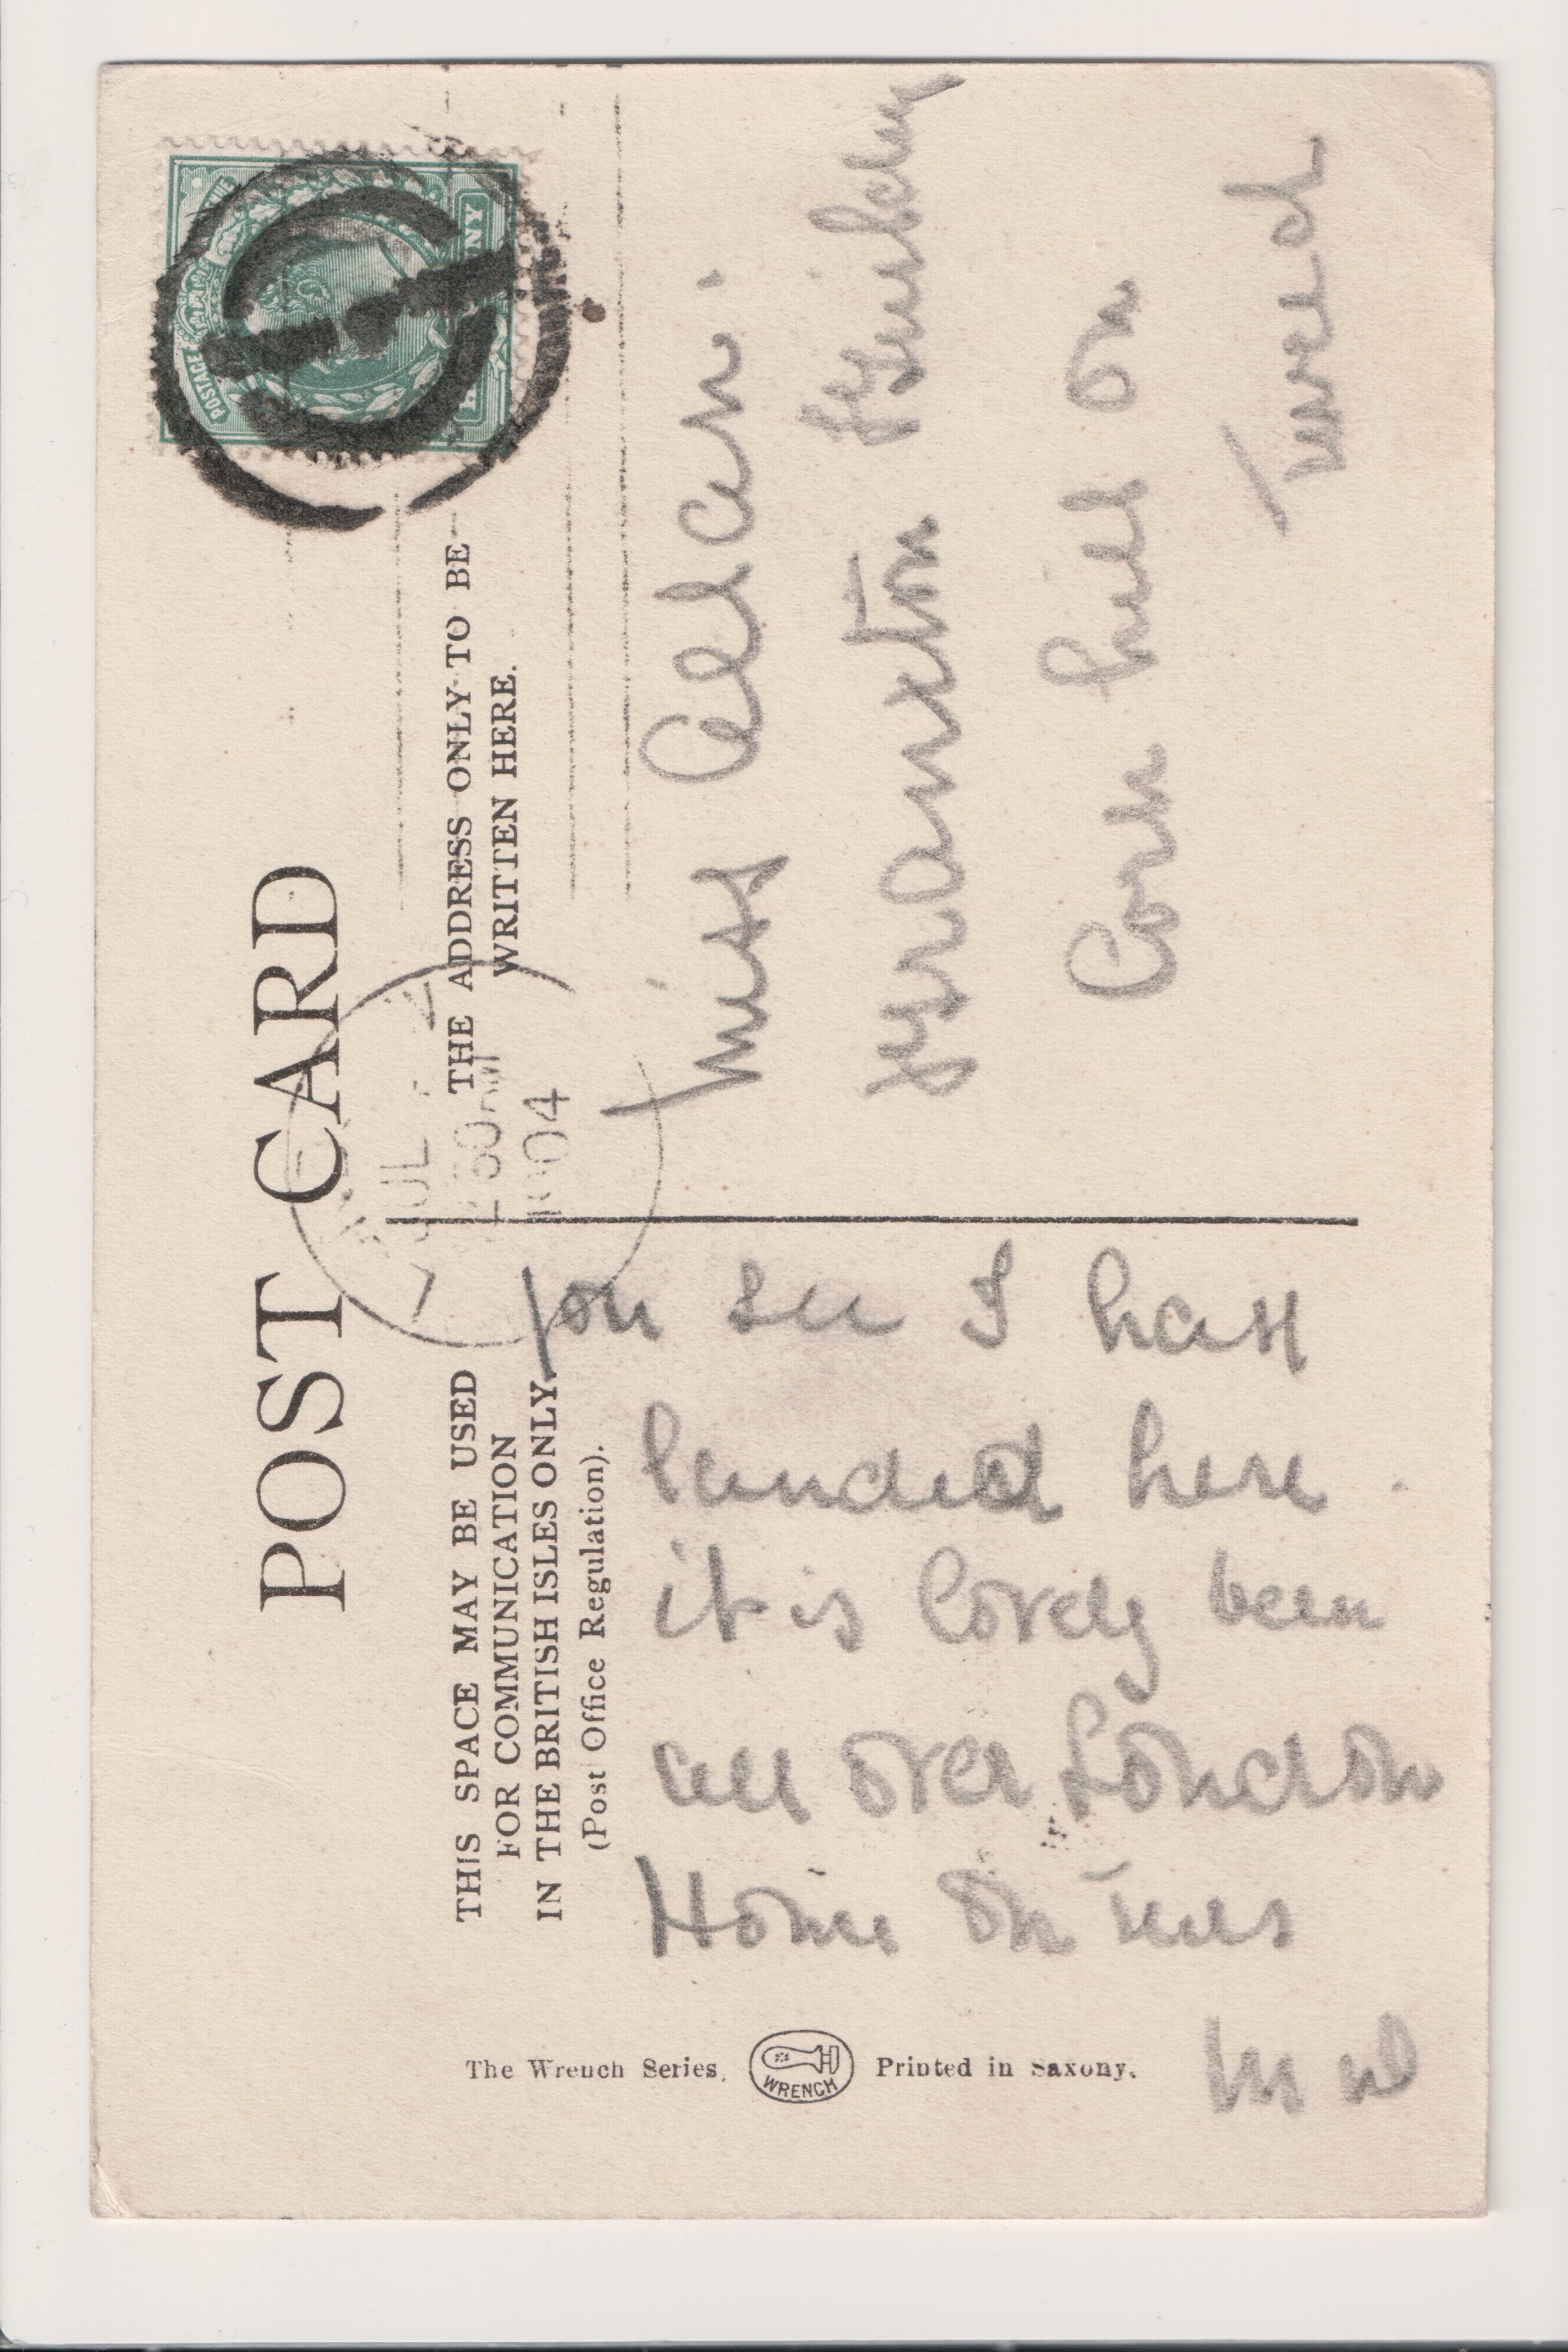 POST CARD
THIS SPACE MAY BE USED
FOR COMMUNICATION
IN THE BRITISH ISLES ONLY.
(Post Office Regulation).
THE ADDRESS ONLY TO BE
WRITTEN HERE.
POSTAGE
JUL
1904
Miss
Branxton
Corn hill on
Tweed
you see I have
landed here.
it is lovely been
all over London
Home on tues
The Wrench Series.
WRENCH
Printed in Saxony.